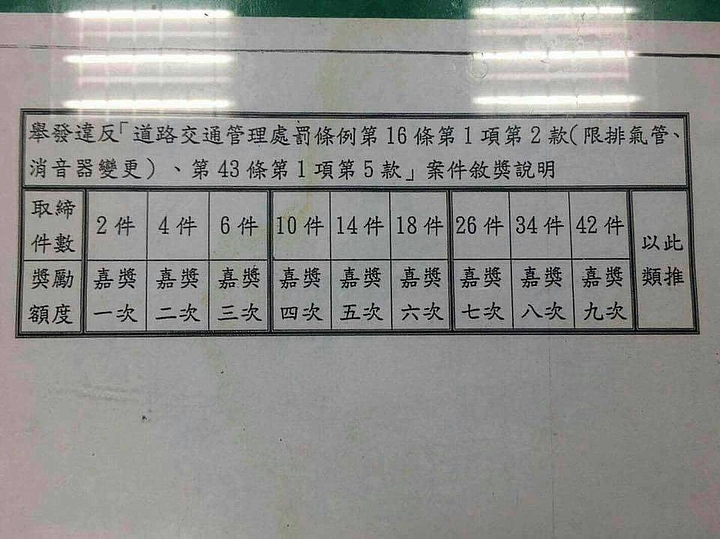 舉發違反「道路交通管理處罰條例第16條第1項第2款(限排氣管、
消音器變更)、第43條第1項第5款」案件敘獎說明
取締件數 2件 4件 6件 10件 14件 18件 26件 34件 42件 以此類推
獎勵額度 嘉獎一次 嘉獎二次 嘉獎三次 嘉獎四次 嘉獎五次 嘉獎六次 嘉獎七次 嘉獎八次 嘉獎九次